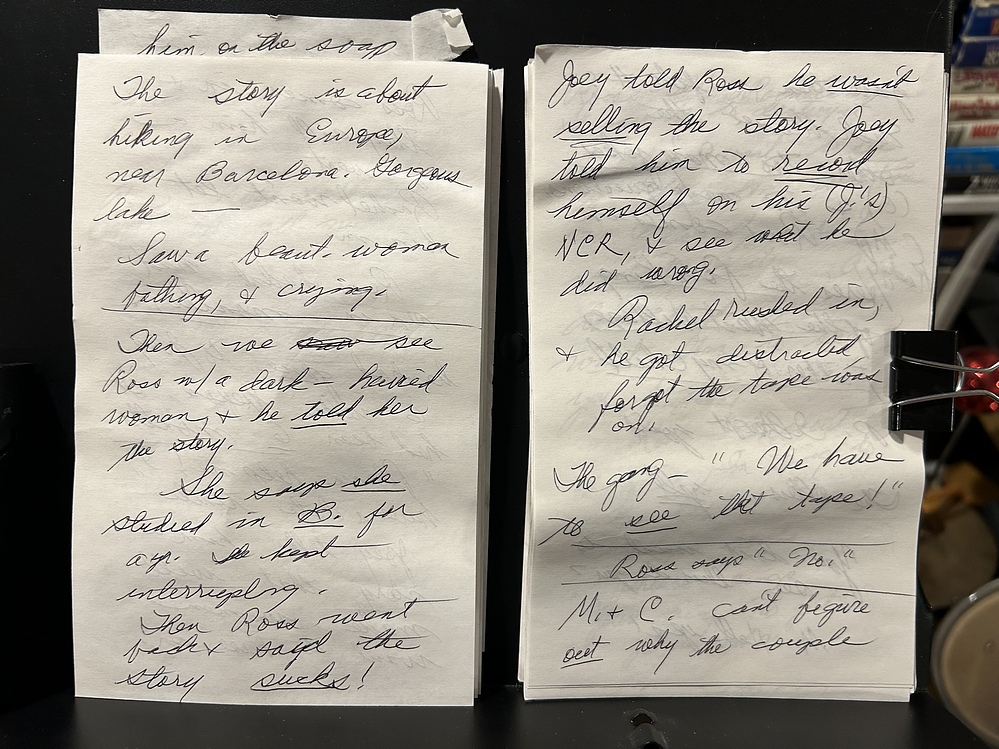 him, on the soap
The story is about
hiking in Europe,
near Barcelona. Gorgeous
lake —
Saw a beaut. woman
bathing, & crying.
Then we saw see
Ross w/ a dark-haired
woman, & he told her
the story.
She says she
studied in B. for
a yr. She kept
interrupting.
Then Ross went
back & said the
story sucks!
Joey told Ross he wasn't
selling the story. Joey
told him to record
himself on his (J.'s)
VCR, & see what he
did wrong.
Rachel rushed in,
& he got distracted,
forgot the tape was
on.
The gang — "We have
to see that tape!"
Ross says "No."
M. & C. can't figure
out why the couple